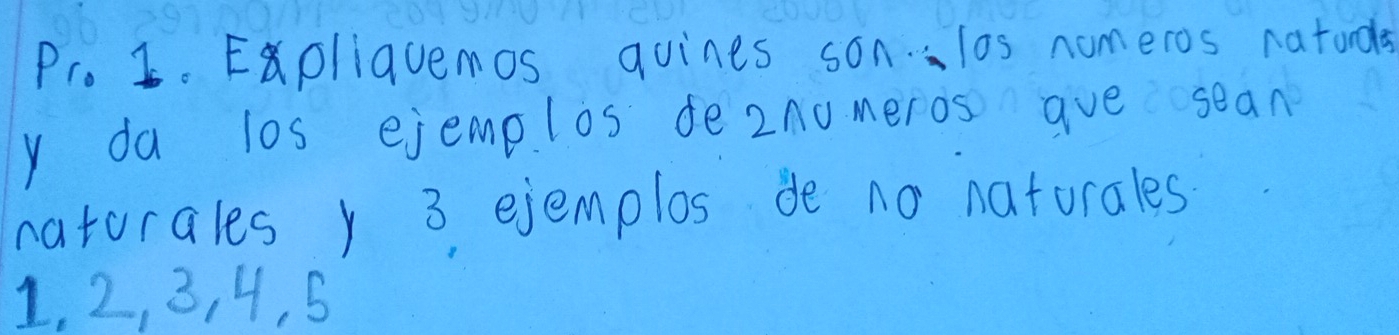 Pr. 1. Expliquemos quines son los numeros naturales
y da los ejemplos de 2 numeros que sean
naturales y 3 ejemplos de no naturales.
1, 2, 3, 4, 5